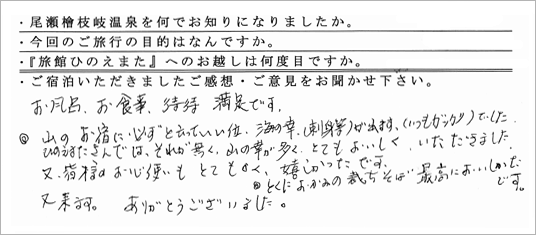 ・尾瀬檜枝岐温泉を何でお知りになりましたか。
・今回のご旅行の目的はなんですか。
・『旅館ひのえまた』へのお越しは何度目ですか。
・ご宿泊いただきましたご感想・ご意見をお聞かせ下さい。
お風呂、お食事、接待 満足です。
◎ 山のお宿に必ずと云っていい位、海の幸(刺身等)が出ます、(いつもガックリ)でした
ひのえまたさんでは、それが無く、山の幸が多く、とてもおいしくいただきました
又、皆様のお心使いもとても良く、嬉しかったです。
◎とくにおかみの裁ちそば最高においしかった
です。
又来ます。 ありがとうございました。